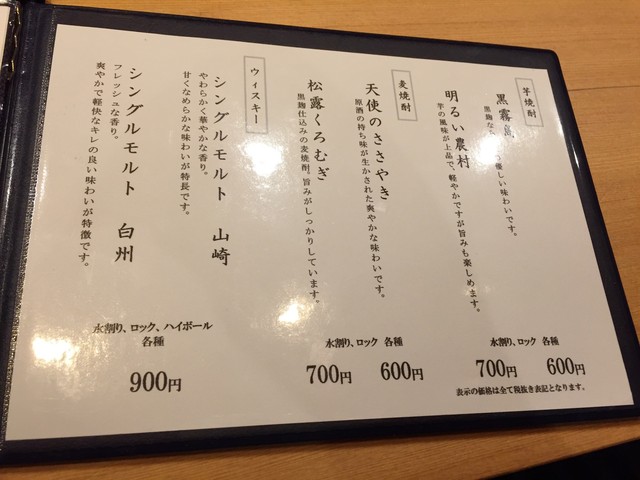 芋焼酎
黒霧島
黒麹な
優しい味わいです。
明るい農村
芋の風味が上品で、軽やかですが旨みも楽しめます。
水割り、ロック 各種
600円
700円
麦焼酎
天使のささやき
原酒の持ち味が生かされた爽やかな味わいです。
松露くろむぎ
黒麹仕込みの麦焼酎。旨みがしっかりしています。
水割り、ロック 各種
600円
700円
ウィスキー
シングルモルト 山崎
やわらかく華やかな香り。
甘くなめらかな味わいが特長です。
シングルモルト 白州
フレッシュな香り。
爽やかで軽快なキレの良い味わいが特徴です。
水割り、ロック、ハイボール
各種
900円
表示の価格は全て税抜き表記となります。